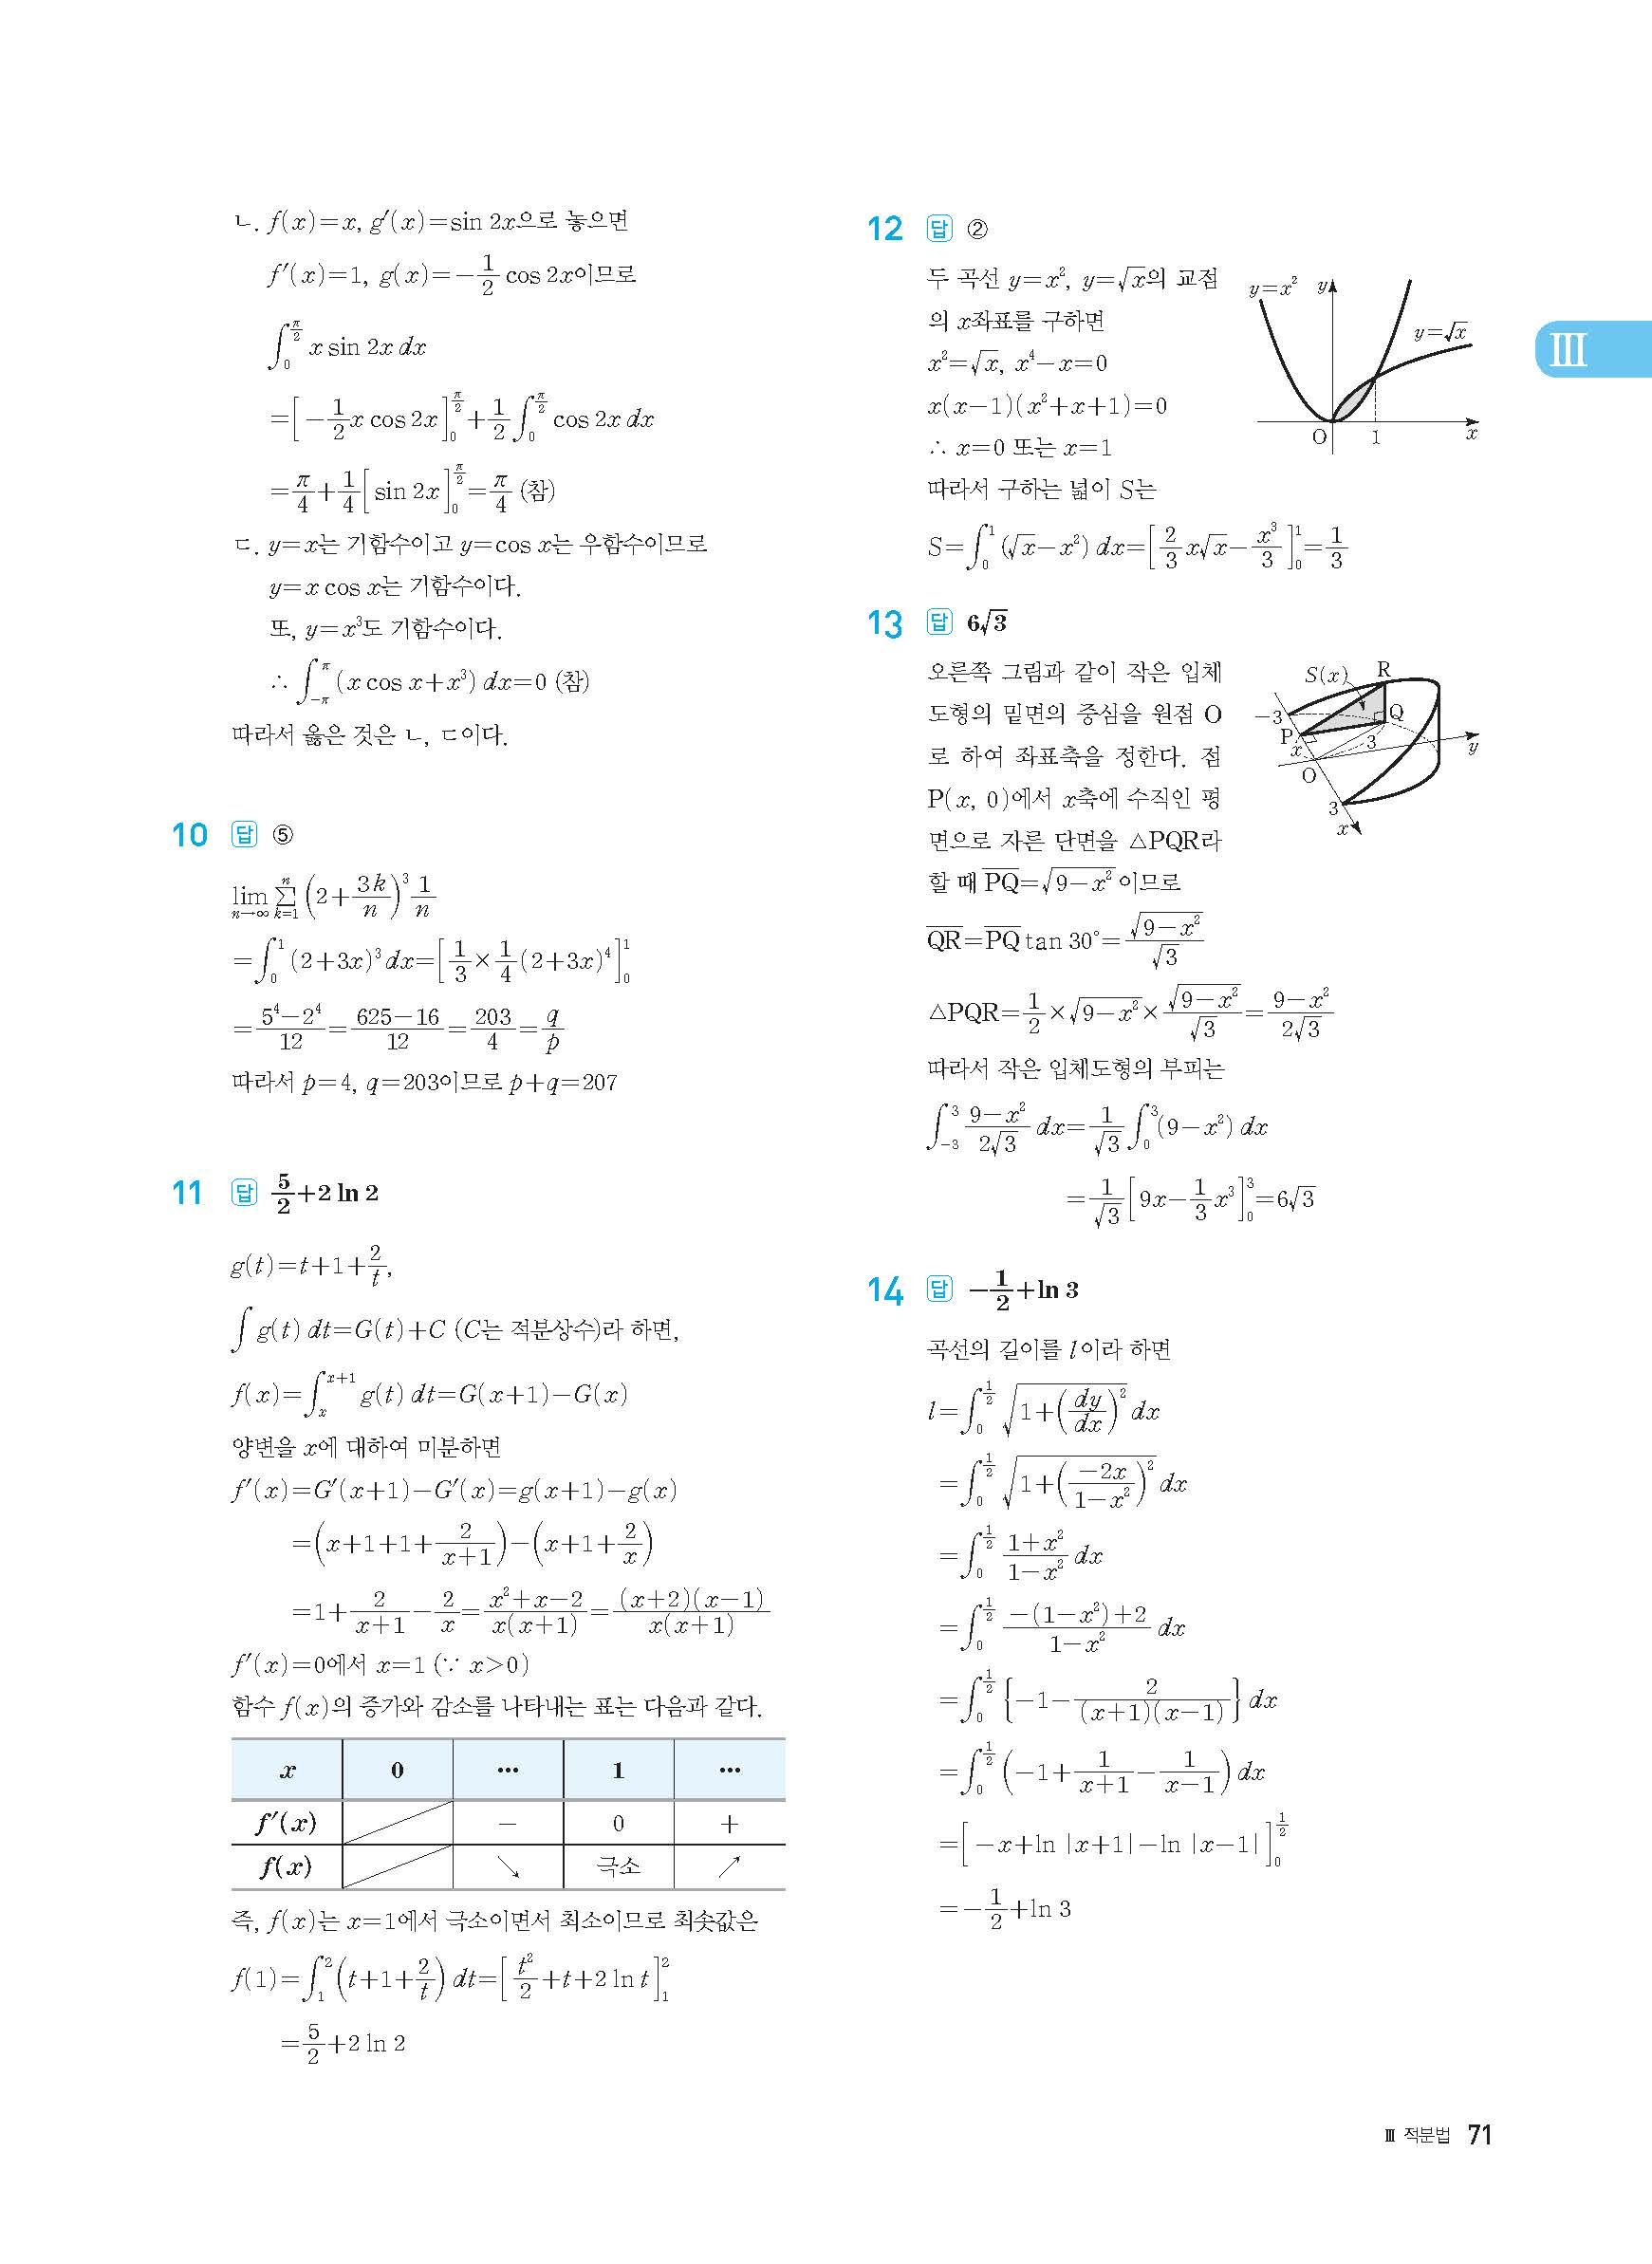 ㄴ. f(x)=x, g′(x)=sin 2x으로 놓으면
f′(x)=1, g(x)=-\frac{1}{2} cos 2x이므로
∫_{0}^{\frac{π}{2}} x sin 2x dx
=[-\frac{1}{2}x cos 2x]_{0}^{\frac{π}{2}}+\frac{1}{2}∫_{0}^{\frac{π}{2}} cos 2x dx
=\frac{π}{4}+\frac{1}{4}[sin 2x]_{0}^{\frac{π}{2}}=\frac{π}{4} (참)
ㄷ. y=x는 기함수이고 y=cos x는 우함수이므로
y=x cos x는 기함수이다.
또, y=x³도 기함수이다.
∴ ∫_{-π}^{π} (x cos x+x³) dx=0 (참)
따라서 옳은 것은 ㄴ, ㄷ이다.
10 답 ⑤
lim_{n→∞} Σ_{k=1}^{n} (2+\frac{3k}{n})³ \frac{1}{n}
=∫_{0}^{1} (2+3x)³ dx=[\frac{1}{3}×\frac{1}{4}(2+3x)⁴]_{0}^{1}
=\frac{5⁴-2⁴}{12}=\frac{625-16}{12}=\frac{203}{4}=\frac{q}{p}
따라서 p=4, q=203이므로 p+q=207
11 답 \frac{5}{2}+2 ln 2
g(t)=t+1+\frac{2}{t},
∫ g(t) dt=G(t)+C (C는 적분상수)라 하면,
f(x)=∫_{x}^{x+1} g(t) dt=G(x+1)-G(x)
양변을 x에 대하여 미분하면
f′(x)=G′(x+1)-G′(x)=g(x+1)-g(x)
=(x+1+1+\frac{2}{x+1})-(x+1+\frac{2}{x})
=1+\frac{2}{x+1}-\frac{2}{x}=\frac{x²+x-2}{x(x+1)}=\frac{(x+2)(x-1)}{x(x+1)}
f′(x)=0에서 x=1 (∵ x>0)
함수 f(x)의 증가와 감소를 나타내는 표는 다음과 같다.
x 0 ⋯ 1 ⋯
f′(x) - 0 +
f(x) ↘ 극소 ↗
즉, f(x)는 x=1에서 극소이면서 최소이므로 최솟값은
f(1)=∫_{1}^{2} (t+1+\frac{2}{t}) dt=[\frac{t²}{2}+t+2 ln t]_{1}^{2}
=\frac{5}{2}+2 ln 2
12 답 ②
두 곡선 y=x², y=√x의 교점
의 x좌표를 구하면
x²=√x, x⁴-x=0
x(x-1)(x²+x+1)=0
∴ x=0 또는 x=1
따라서 구하는 넓이 S는
S=∫_{0}^{1} (√x-x²) dx=[\frac{2}{3}x√x-\frac{x³}{3}]_{0}^{1}=\frac{1}{3}
y=x² y
y=√x
O 1 x
13 답 6√3
오른쪽 그림과 같이 작은 입체
도형의 밑면의 중심을 원점 O
로 하여 좌표축을 정한다. 점
P(x, 0)에서 x축에 수직인 평
면으로 자른 단면을 △PQR라
할 때 \overline{PQ}=√(9-x²)이므로
S(x) R
-3 Q
P x 3 y
O
3
x
\overline{QR}=\overline{PQ} tan 30°=\frac{√(9-x²)}{√3}
△PQR=\frac{1}{2}×√(9-x²)×\frac{√(9-x²)}{√3}=\frac{9-x²}{2√3}
따라서 작은 입체도형의 부피는
∫_{-3}^{3} \frac{9-x²}{2√3} dx=\frac{1}{√3}∫_{0}^{3} (9-x²) dx
=\frac{1}{√3}[9x-\frac{1}{3}x³]_{0}^{3}=6√3
14 답 -\frac{1}{2}+ln 3
곡선의 길이를 l이라 하면
l=∫_{0}^{\frac{1}{2}} √(1+(\frac{dy}{dx})²) dx
=∫_{0}^{\frac{1}{2}} √(1+(\frac{-2x}{1-x²})²) dx
=∫_{0}^{\frac{1}{2}} \frac{1+x²}{1-x²} dx
=∫_{0}^{\frac{1}{2}} \frac{-(1-x²)+2}{1-x²} dx
=∫_{0}^{\frac{1}{2}} {-1-\frac{2}{(x+1)(x-1)}} dx
=∫_{0}^{\frac{1}{2}} (-1+\frac{1}{x+1}-\frac{1}{x-1}) dx
=[-x+ln |x+1|-ln |x-1|]_{0}^{\frac{1}{2}}
=-\frac{1}{2}+ln 3
Ⅲ
Ⅲ 적분법 71